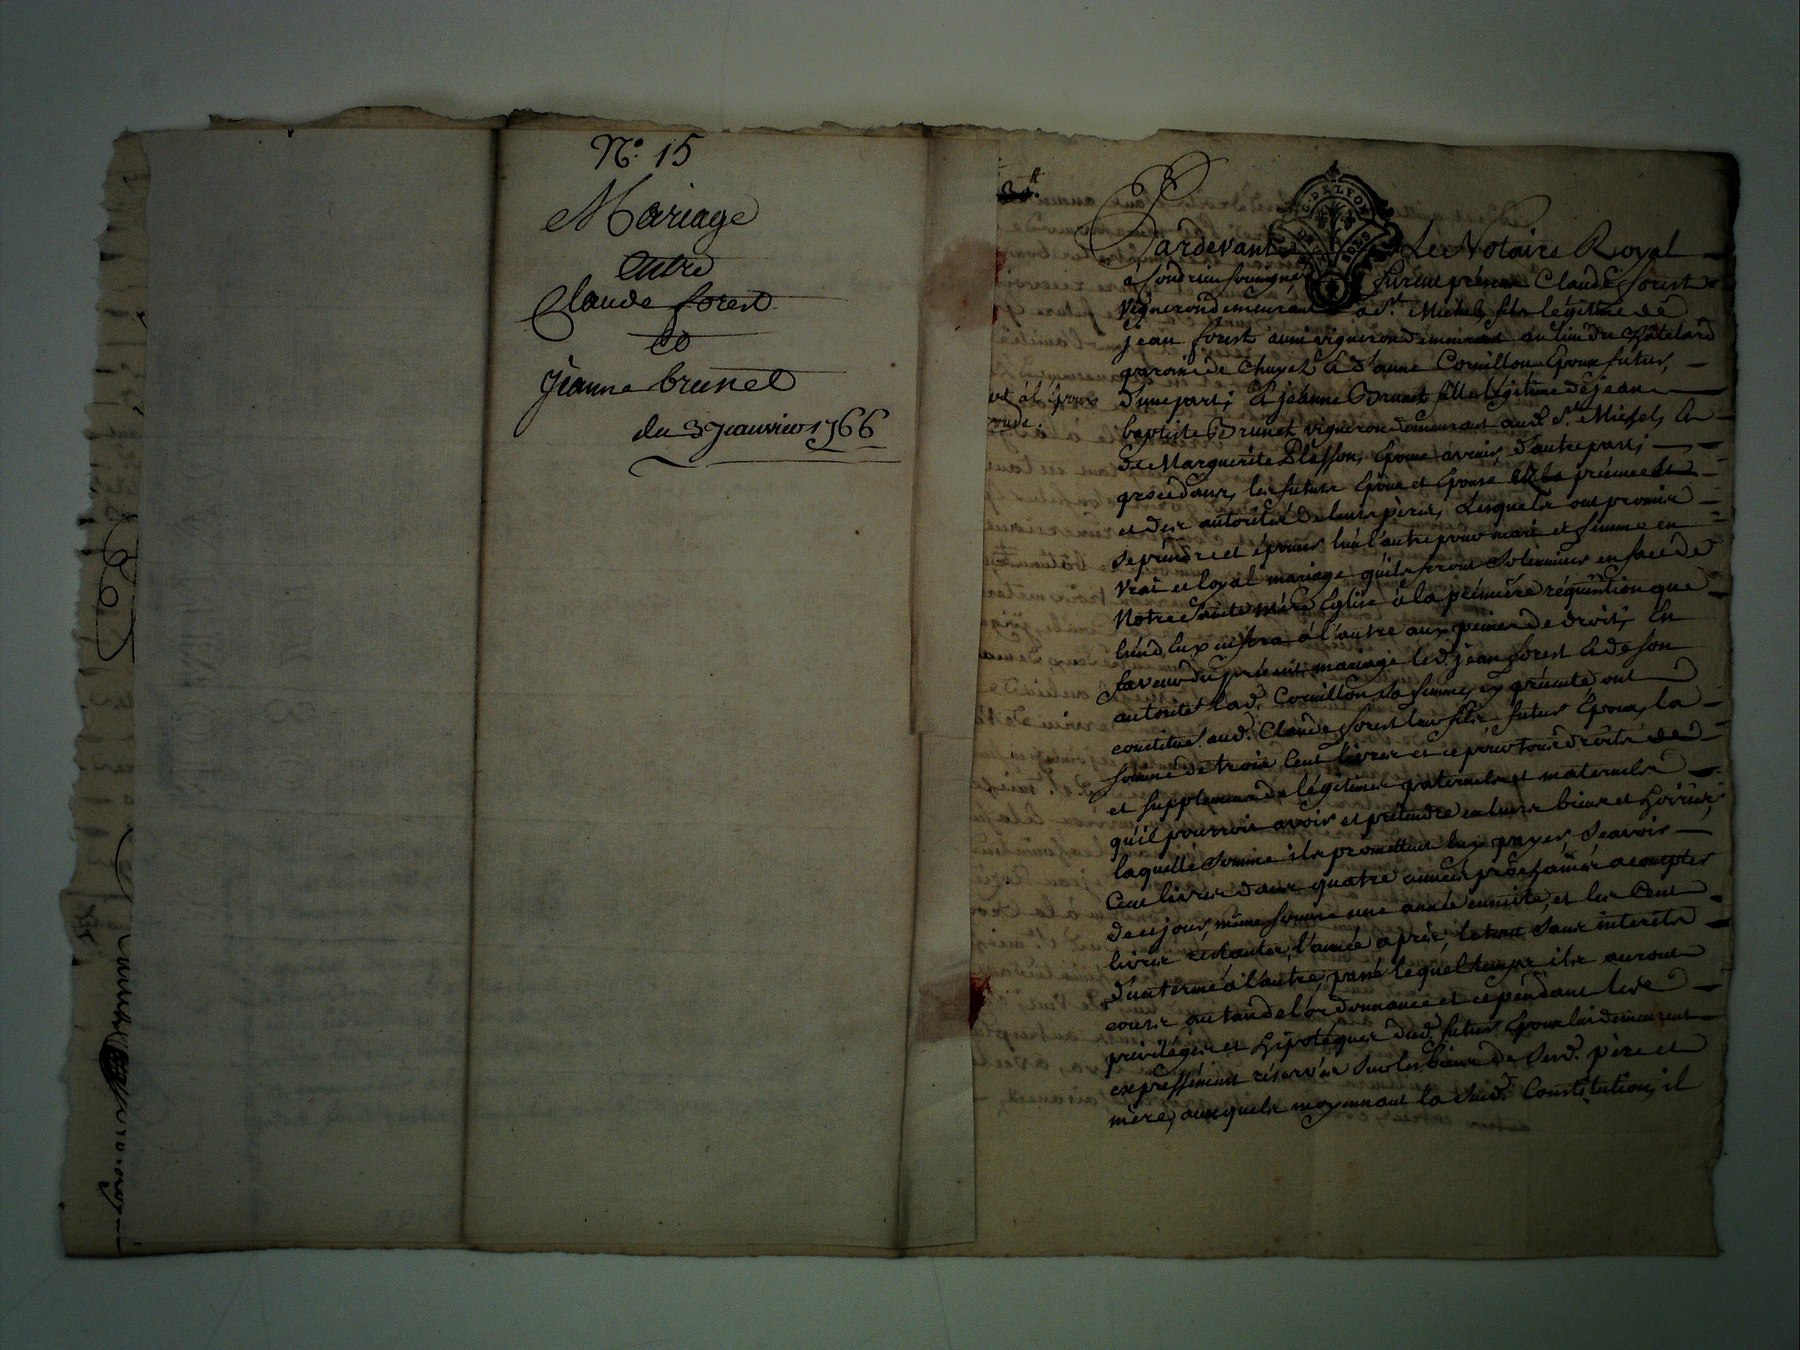 N.º 15
Mariage
Entre
Claude forest
Et
jeanne brunel
du 3 Janvier 1766
30.#
G. DE LYON
Pardevant Le Notaire Royal
à Condrieu soussigné furent présens Claude forest
vigneron demeurant a St. Michel, fils légitime de
jean forest aussi vigneron demeurant au lieu du Châtelard
paroisse de Chuyer & d'anne Cornillon Epoux futur,
d'une part; Et jeanne Brunel fille légitime de jean
baptiste Brunel vigneron demeurant aud. St. Michel, Et
de Marguerite Plasson, Epouse avenir, d'autre part;
procédans, les futurs Epoux et Epouse
et des autorités de leurs pères, Lesquels ont promis
se prendre et épouser l'un l'autre pour mari et femme en
vrai et loyal mariage qu'ils feront solemniser en face de
Notre Sainte mère Eglise à la première réquisition que
l'un d'eux en fera à l'autre aux peines de droit; En
faveur du présent mariage led. jean forest & de son
autorité lad. Cornillon sa femme, cy présente ont
constitué aud. Claude forest leur fils futur Epoux, la
somme de trois Cent livres et ce pour tous droits de
et supplément de légitimes paternels et maternels
qu'il pourroit avoir et prétendre en leurs biens et hoiries;
laquelle somme ils promettent luy payer, Scavoir
Cent livres dans quatre années prochaines a compter
de ce jour, même somme une année ensuite, et les Cent
livres restantes, l'année après, le tout sans interets
d'un terme à l'autre, passé lequel temps ils auront
cours au tau de l'ordonnance et cependant les
privilèges et hipotèques dud. futur Epoux lui demeurent
expressément réservés sur les biens de Sesd. père et
mère, auxquels moyennant la susd. Constitution, il